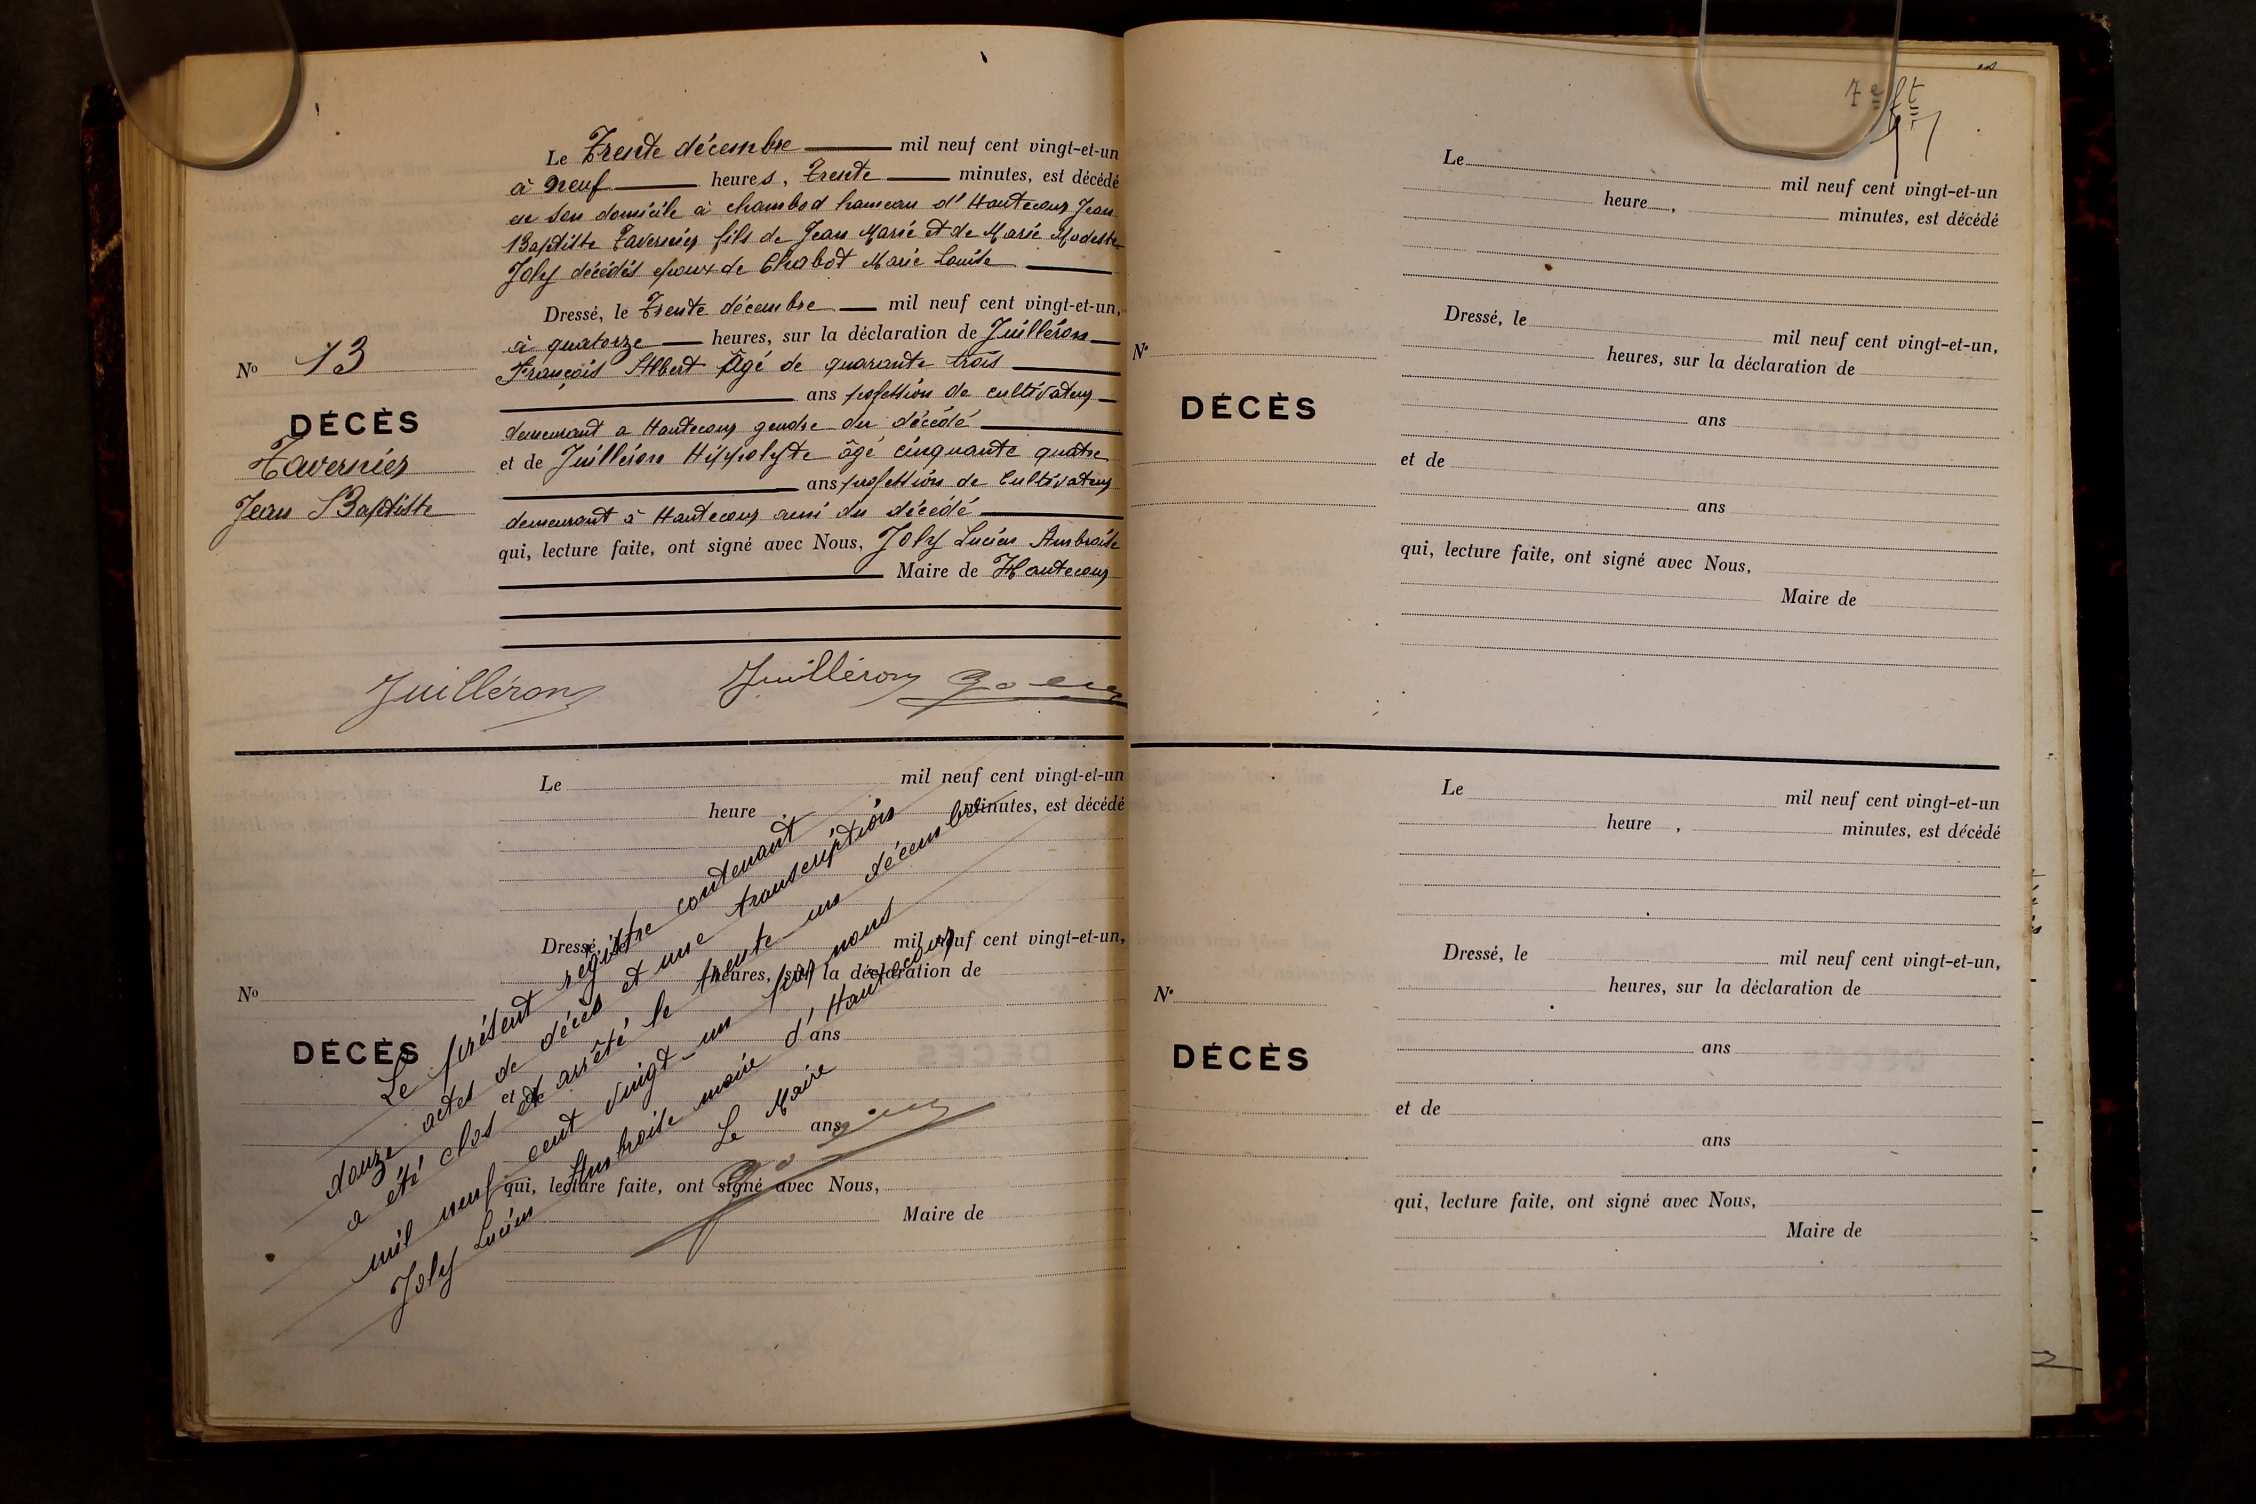 Le Trente décembre mil neuf cent vingt-et-un
à neuf heures, Trente minutes, est décédé
en son domicile à chambod hameau d'Hautecour Jean
Baptiste Tavernier fils de Jean Marie et de Marie Modeste
Joly décédés époux de Chabot Marie Louise
Dressé, le Trente décembre mil neuf cent vingt-et-un,
à quatorze heures, sur la déclaration de Juilléron
François Albert âgé de quarante trois
ans profession de cultivateur
demeurant a Hautecour gendre du décédé
et de Juilléron Hippolyte âgé cinquante quatre
ans profession de Cultivateur
demeurant à Hautecour ami du décédé
qui, lecture faite, ont signé avec Nous, Joly Lucien Ambroise
Maire de Hautecour
No 13
DÉCÈS
Tavernier
Jean Baptiste
Juilléron Juilléron
Le mil neuf cent vingt-et-un
heure minutes, est décédé
Dressé, le mil neuf cent vingt-et-un,
heures, sur la déclaration de
No
ans
DÉCÈS
et de
ans
qui, lecture faite, ont signé avec Nous,
Maire de
Le présent registre contenant
douze actes de décès et une transcription
a été clos et arrêté le trente un décembre
mil neuf cent vingt-un par nous
Joly Lucien Ambroise maire d'Hautecour
Le Maire
7e ft
Le mil neuf cent vingt-et-un
heure , minutes, est décédé
Dressé, le mil neuf cent vingt-et-un,
No heures, sur la déclaration de
DÉCÈS
ans
et de
ans
qui, lecture faite, ont signé avec Nous,
Maire de
Le mil neuf cent vingt-et-un
heure , minutes, est décédé
Dressé, le mil neuf cent vingt-et-un,
No heures, sur la déclaration de
DÉCÈS
ans
et de
ans
qui, lecture faite, ont signé avec Nous,
Maire de